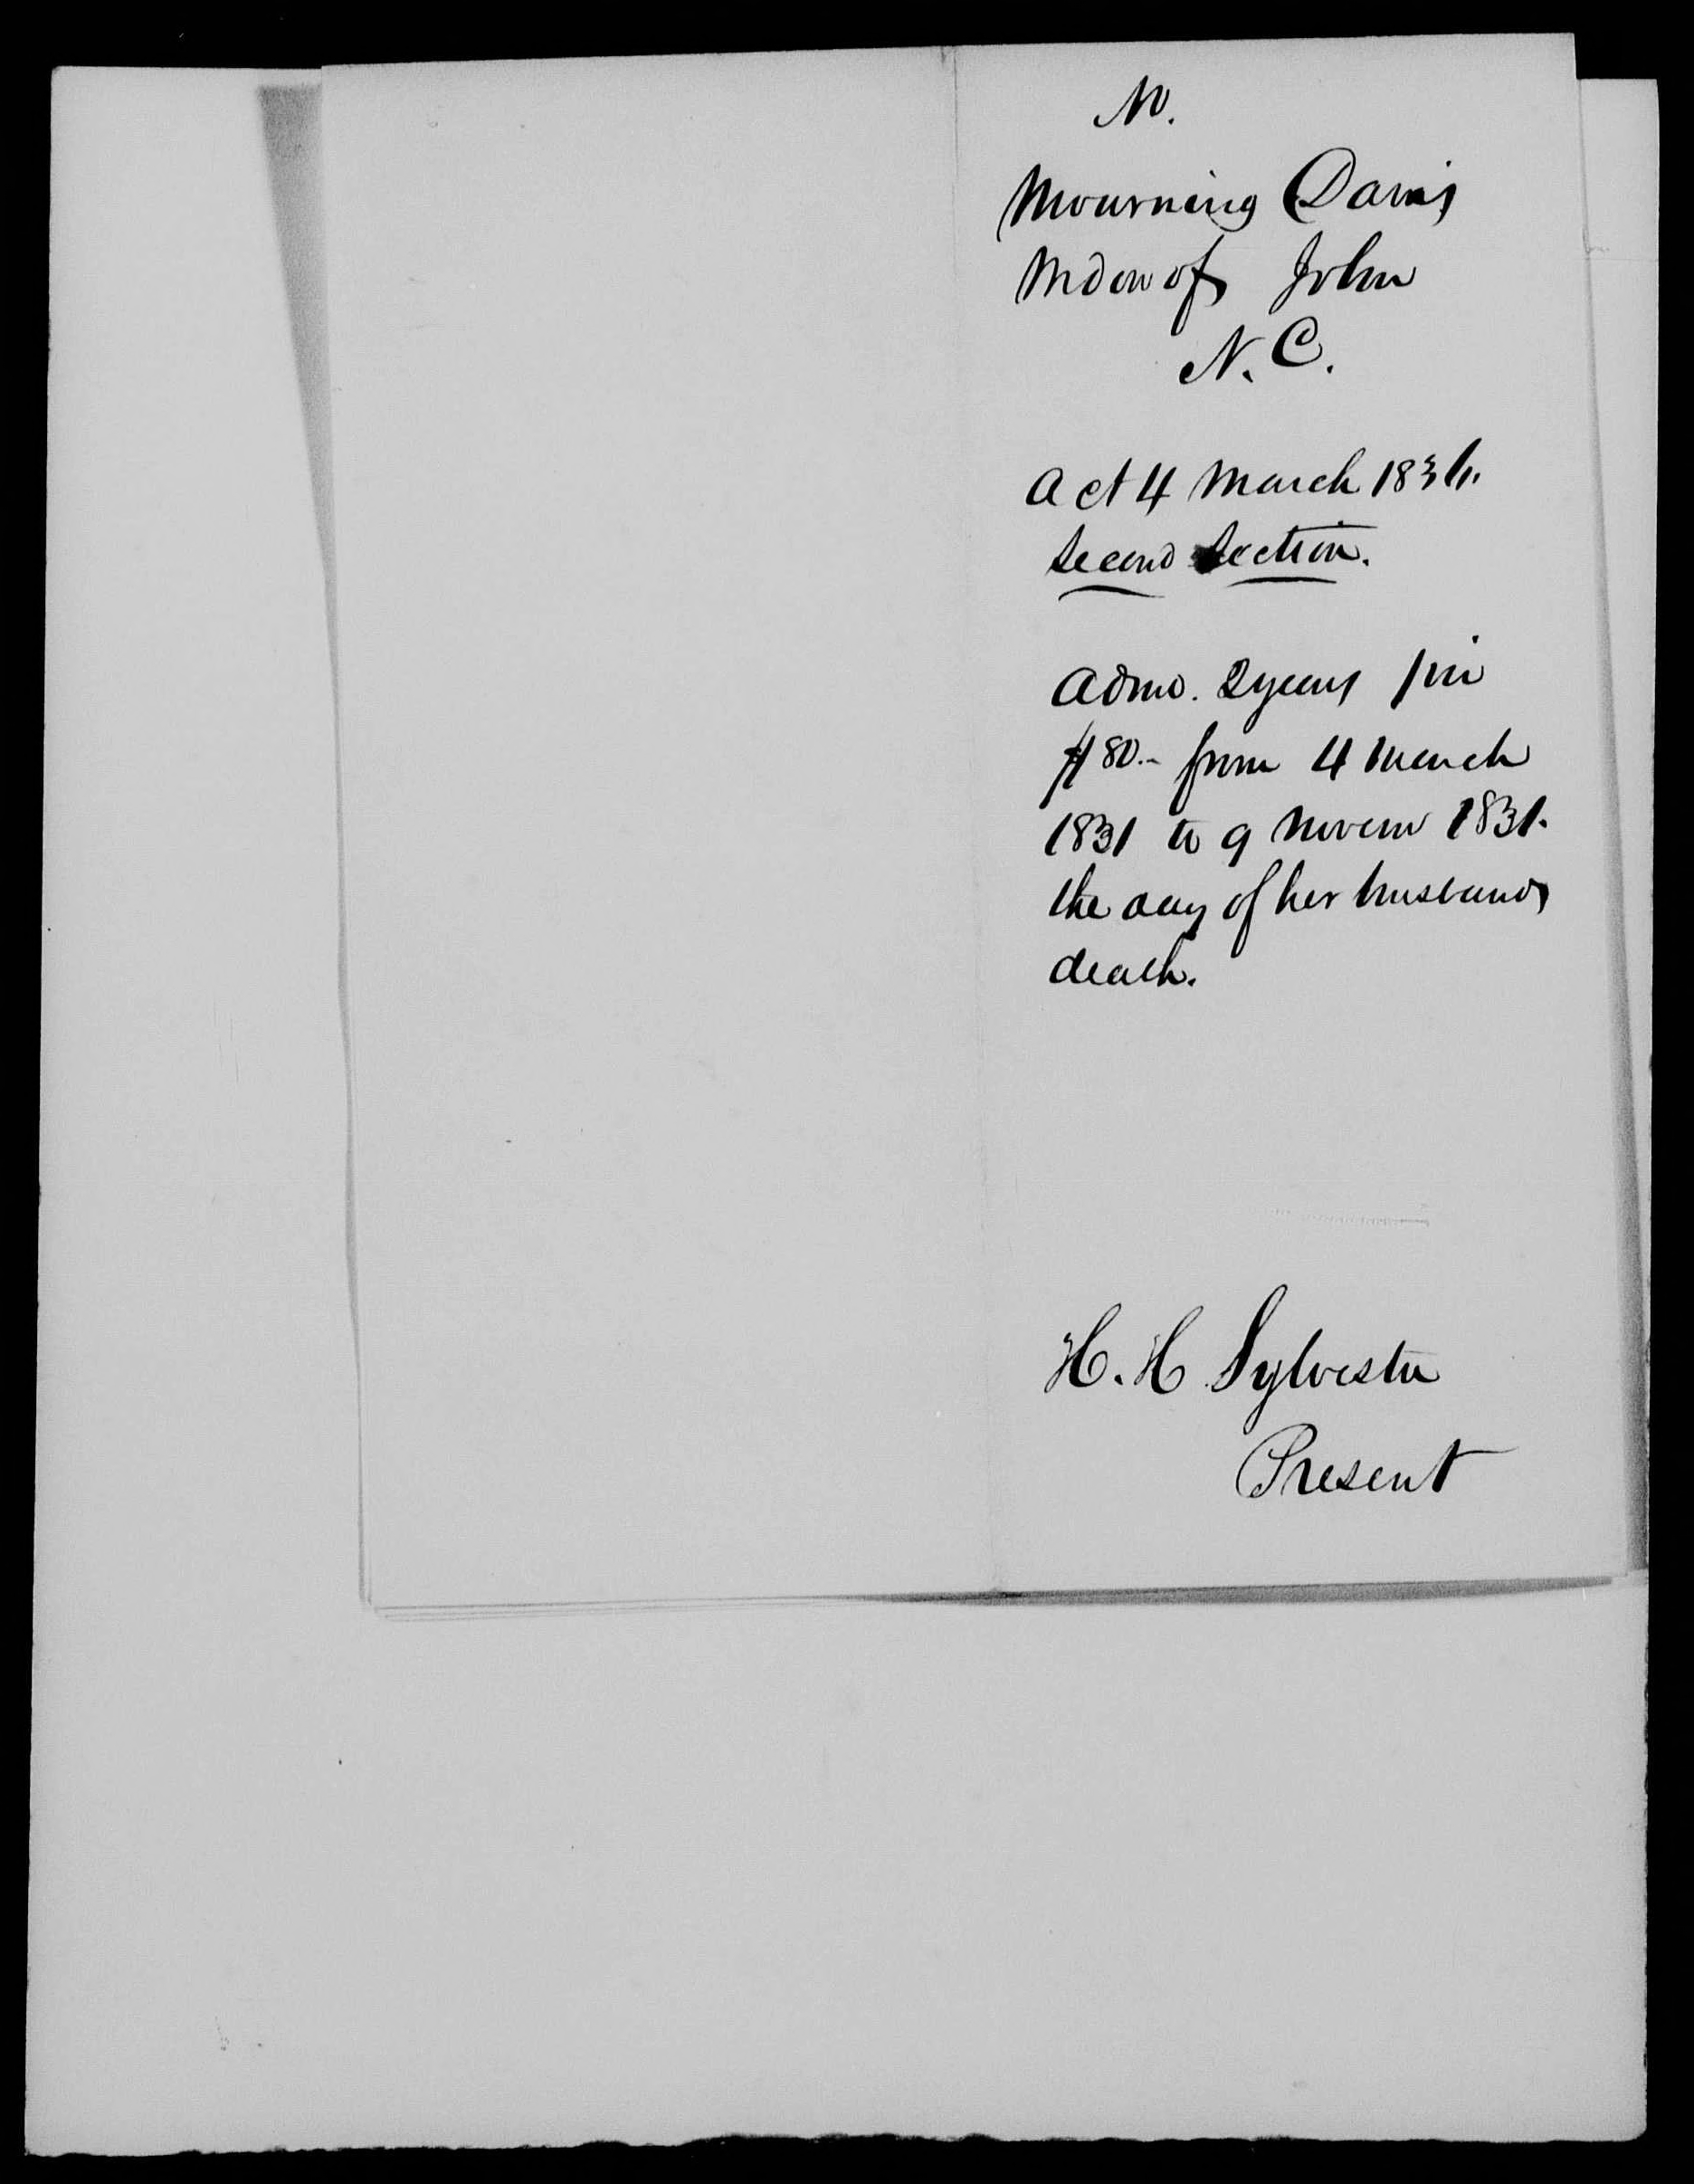 No.
Mourning Davis
Widow of John
N. C.
Act 4 March 1836.
Second Section.
Admd. 2 years pri
$80.- from 4 March
1831 to 9 Novem 1831.
the day of her husbands
death.
H. H Sylvester
Present